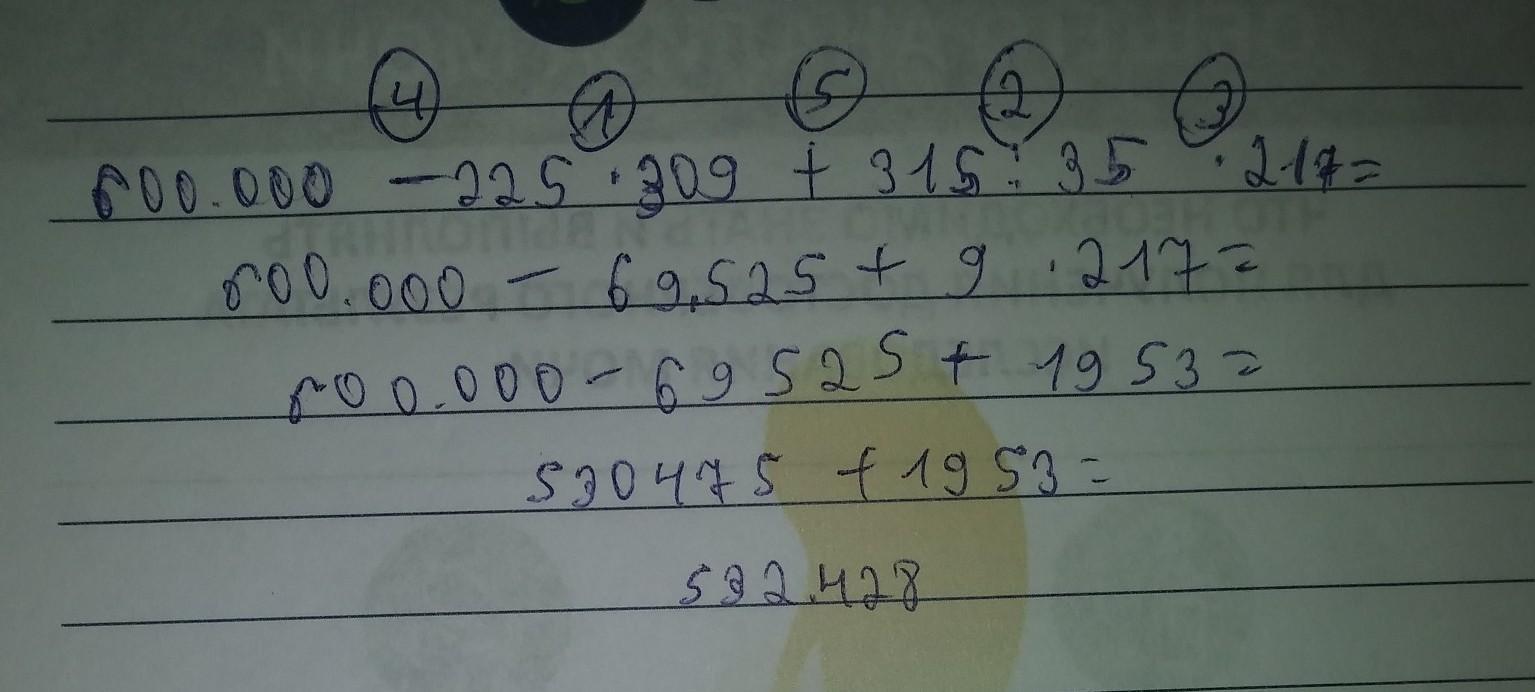 4 1 5 2 3
600.000 - 225 · 309 + 315 : 35 · 217 =
600.000 - 69.525 + 9 · 217 =
600.000 - 69525 + 1953 =
530475 + 1953 =
532.428